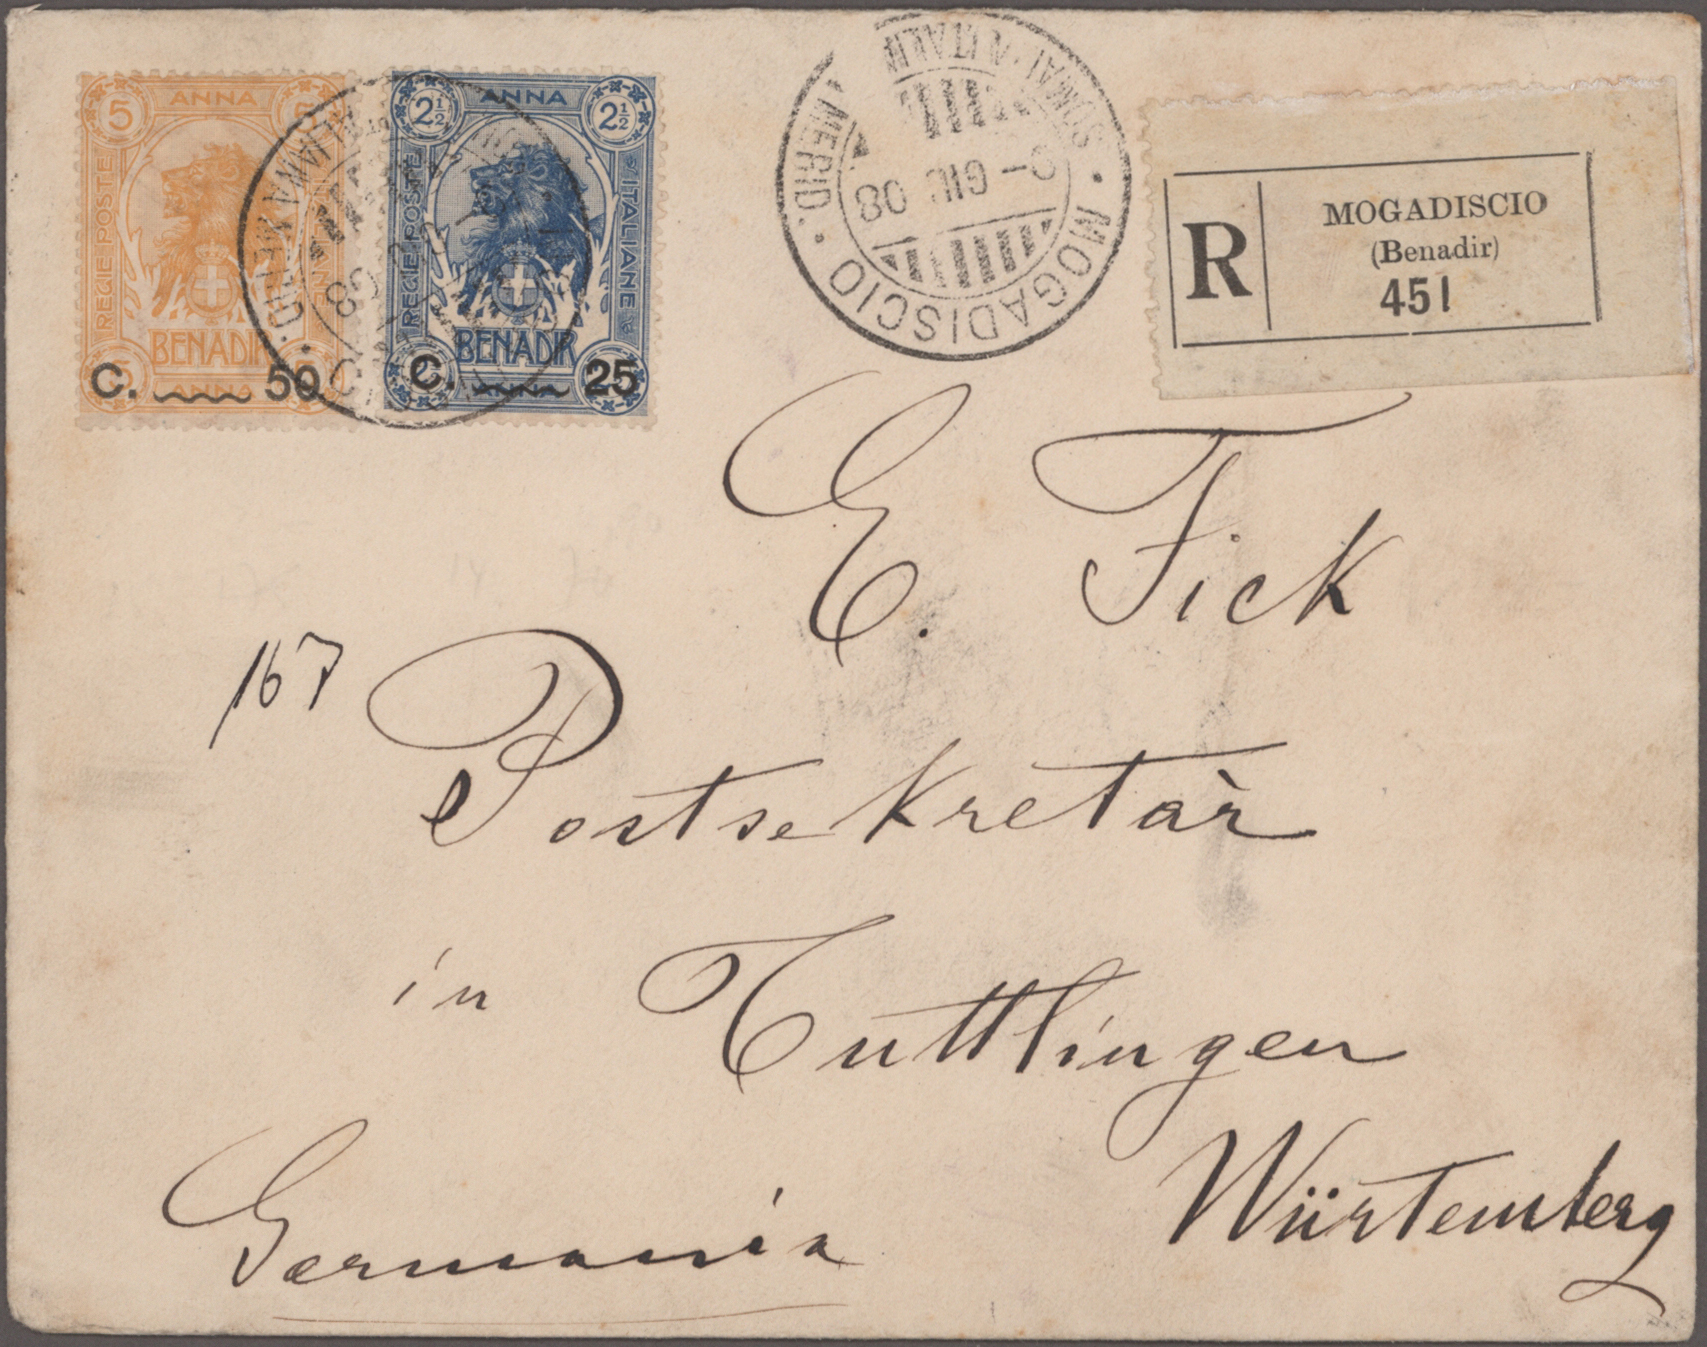 5 ANNA 5
REGIE POSTE
BENADIR
C. 50
5 ANNA
2½ ANNA 2½
REGIE POSTE
ITALIANE
BENADIR
C. ANNA 25
MERID.
MOGADISCIO
GIU 08
R
MOGADISCIO
(Benadir)
451
E. Fick
167
Postsekretär
in Tuttlingen
Würtemberg
Germania